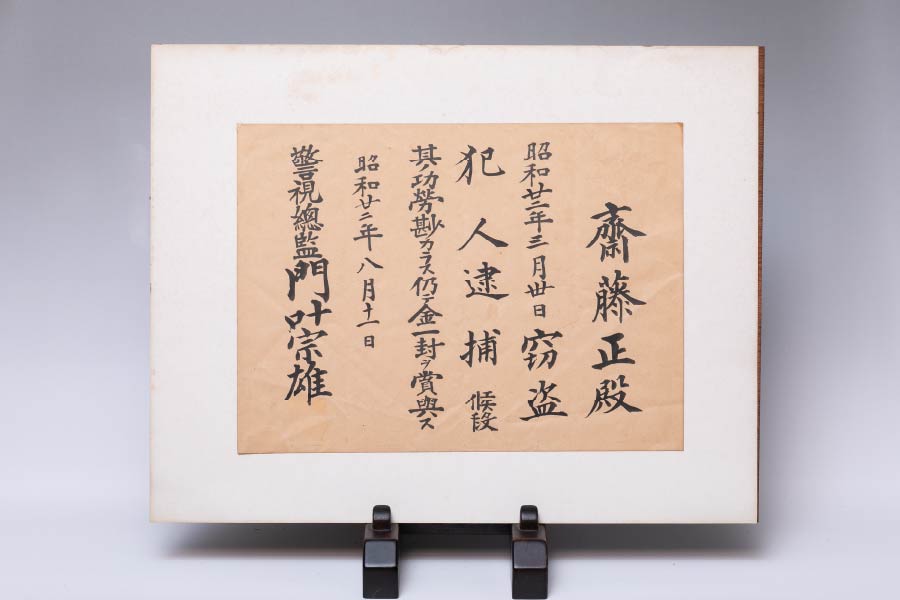 齋藤正殿
昭和廿二年三月卅日窃盗
犯人逮捕候段
其ノ功勞尠カラス仍テ金一封ヲ賞與ス
昭和廿二年八月十一日
警視總監門叶宗雄